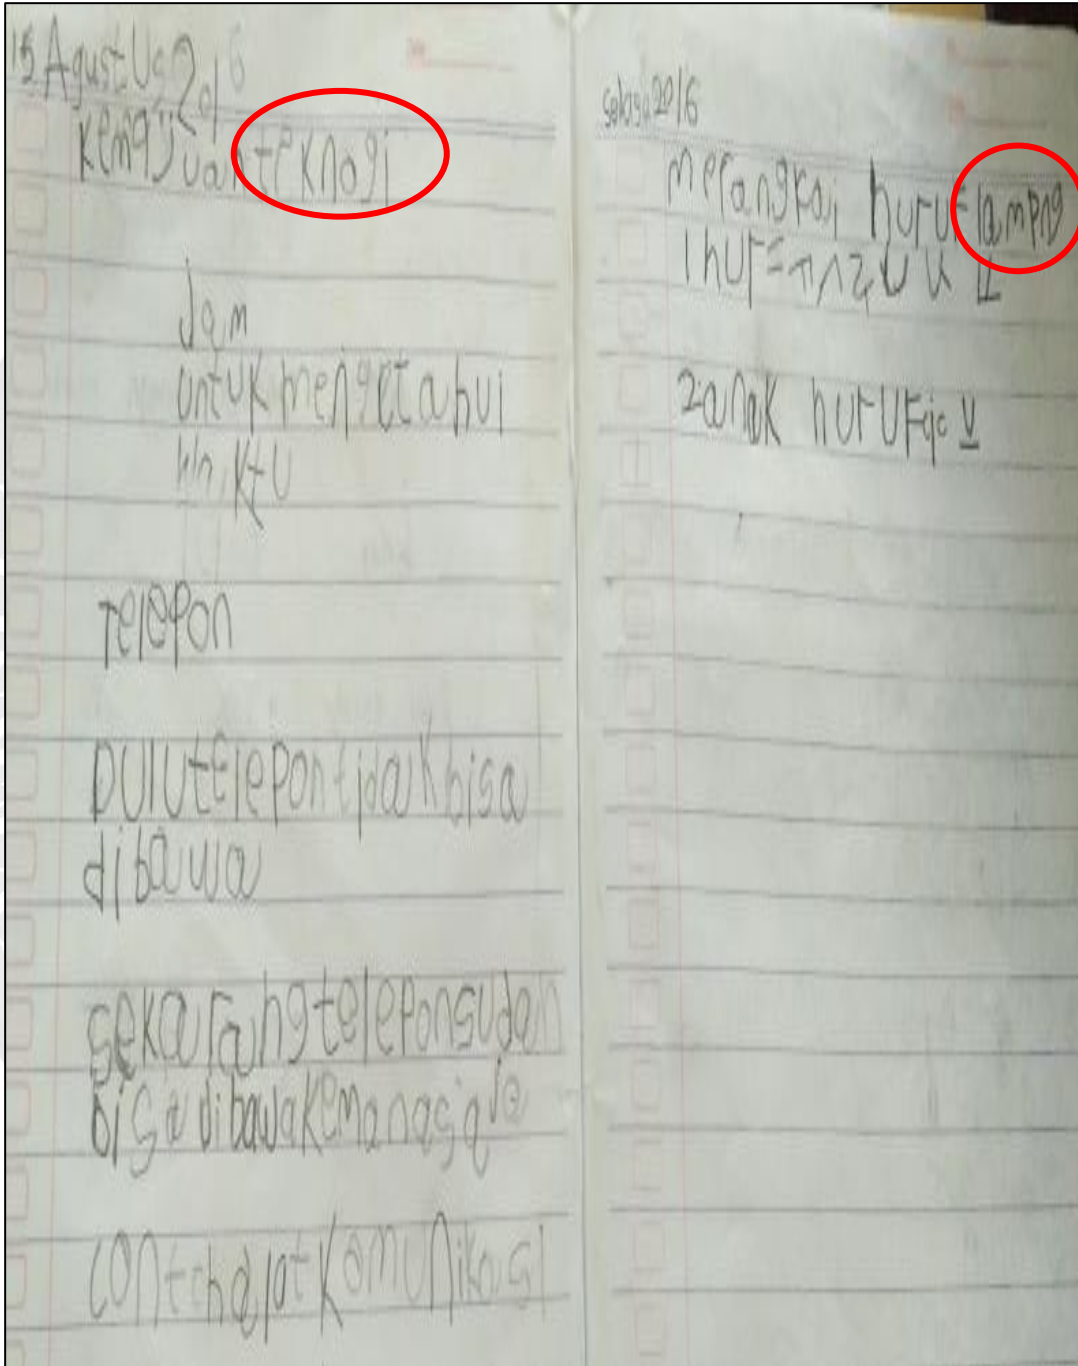 15 Agustus 2016
kemajuan teknogi
Jam
untuk mengetahui
waktu
Telepon
DULU telepon tidak bisa
dibawa
sekarang telepon sudah
bisa dibawa kemana saja
contoh alat komunikasi
2016
merangkai huruf lampng
1 hur =
2 anak huruf